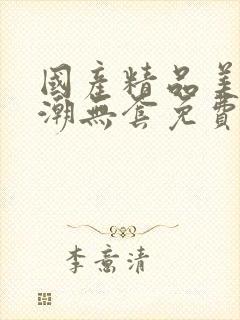 國產精品美
潮無套免費
李意清